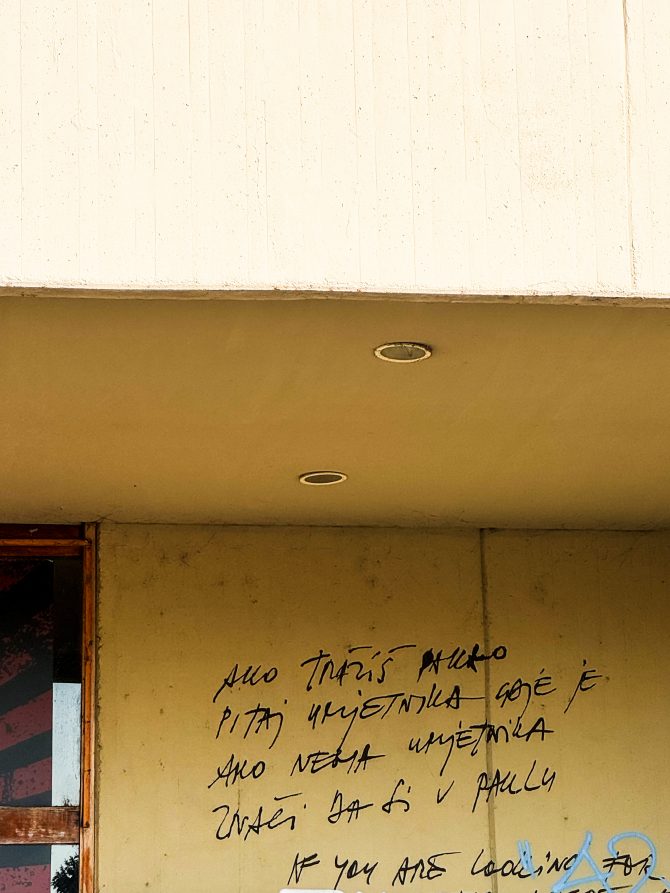 AKO TRAŽIŠ PAKAO
PITAJ UMJETNIKA GDJE JE
AKO NEMA UMJETNIKA
ZNAČI DA SI V PAKLU
IF YOU ARE LOOKING FOR